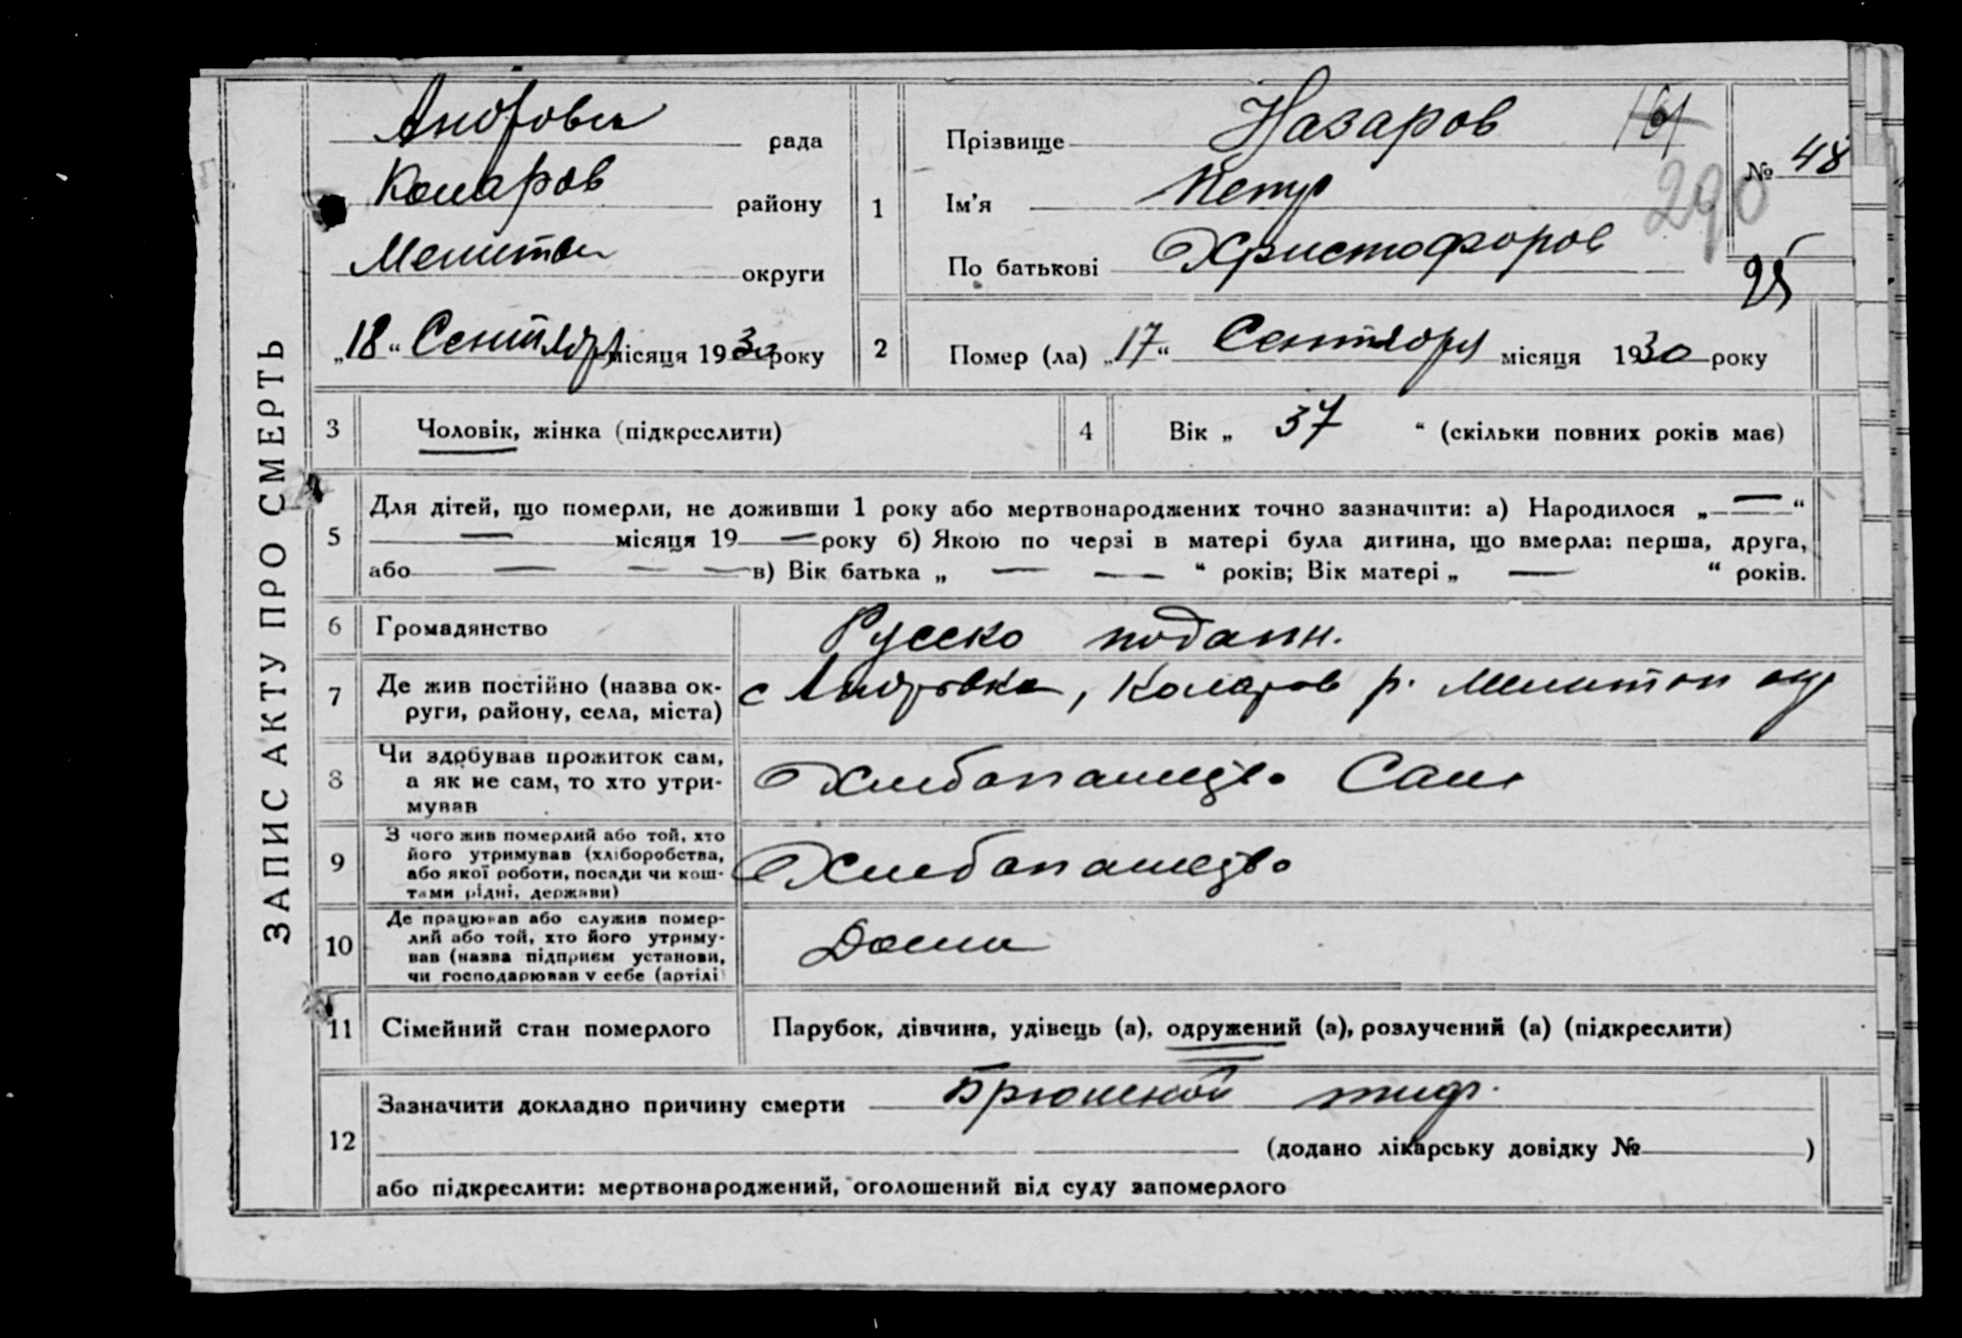 ЗАПИС АКТУ ПРО СМЕРТЬ
Андровск рада
Коларов району
Мелитоп округи
„18“ Сентября місяця 1930 року
1
Прізвище Назаров
Ім’я Петр
По батькові Христофоров
№ 48
290
95
2
Помер (ла) „17“ Сентября місяця 1930 року
3 Чоловік, жінка (підкреслити)
4 Вік „ 37 “ (скільки повних років має)
5
Для дітей, що померли, не доживши 1 року або мертвонароджених точно зазначити: а) Народилося „ — “
— місяця 19 — року б) Якою по черзі в матері була дитина, що вмерла: перша, друга,
або — — — в) Вік батька „ — — “ років; Вік матері „ — “ років.
6 Громадянство Русско податн.
7 Де жив постійно (назва ок-
руги, району, села, міста)
с Андровка, Коларов р. Мелитоп окр
8 Чи здобував прожиток сам,
а як не сам, то хто утри-
мував
Хлебопашество Сам
9 З чого жив померлий або той, хто
його утримував (хліборобства,
або якої роботи, посади чи кош-
тами рідні, держави)
Хлебопашество
10 Де працював або служив помер-
лий або той, хто його утриму-
вав (назва підприєм установи,
чи господарював у себе (артілі)
Дома
11 Сімейний стан померлого Парубок, дівчина, удівець (а), одружений (а), розлучений (а) (підкреслити)
12
Зазначити докладно причину смерти Брюшной тиф.
(додано лікарську довідку № )
або підкреслити: мертвонароджений, оголошений від суду запомерлого